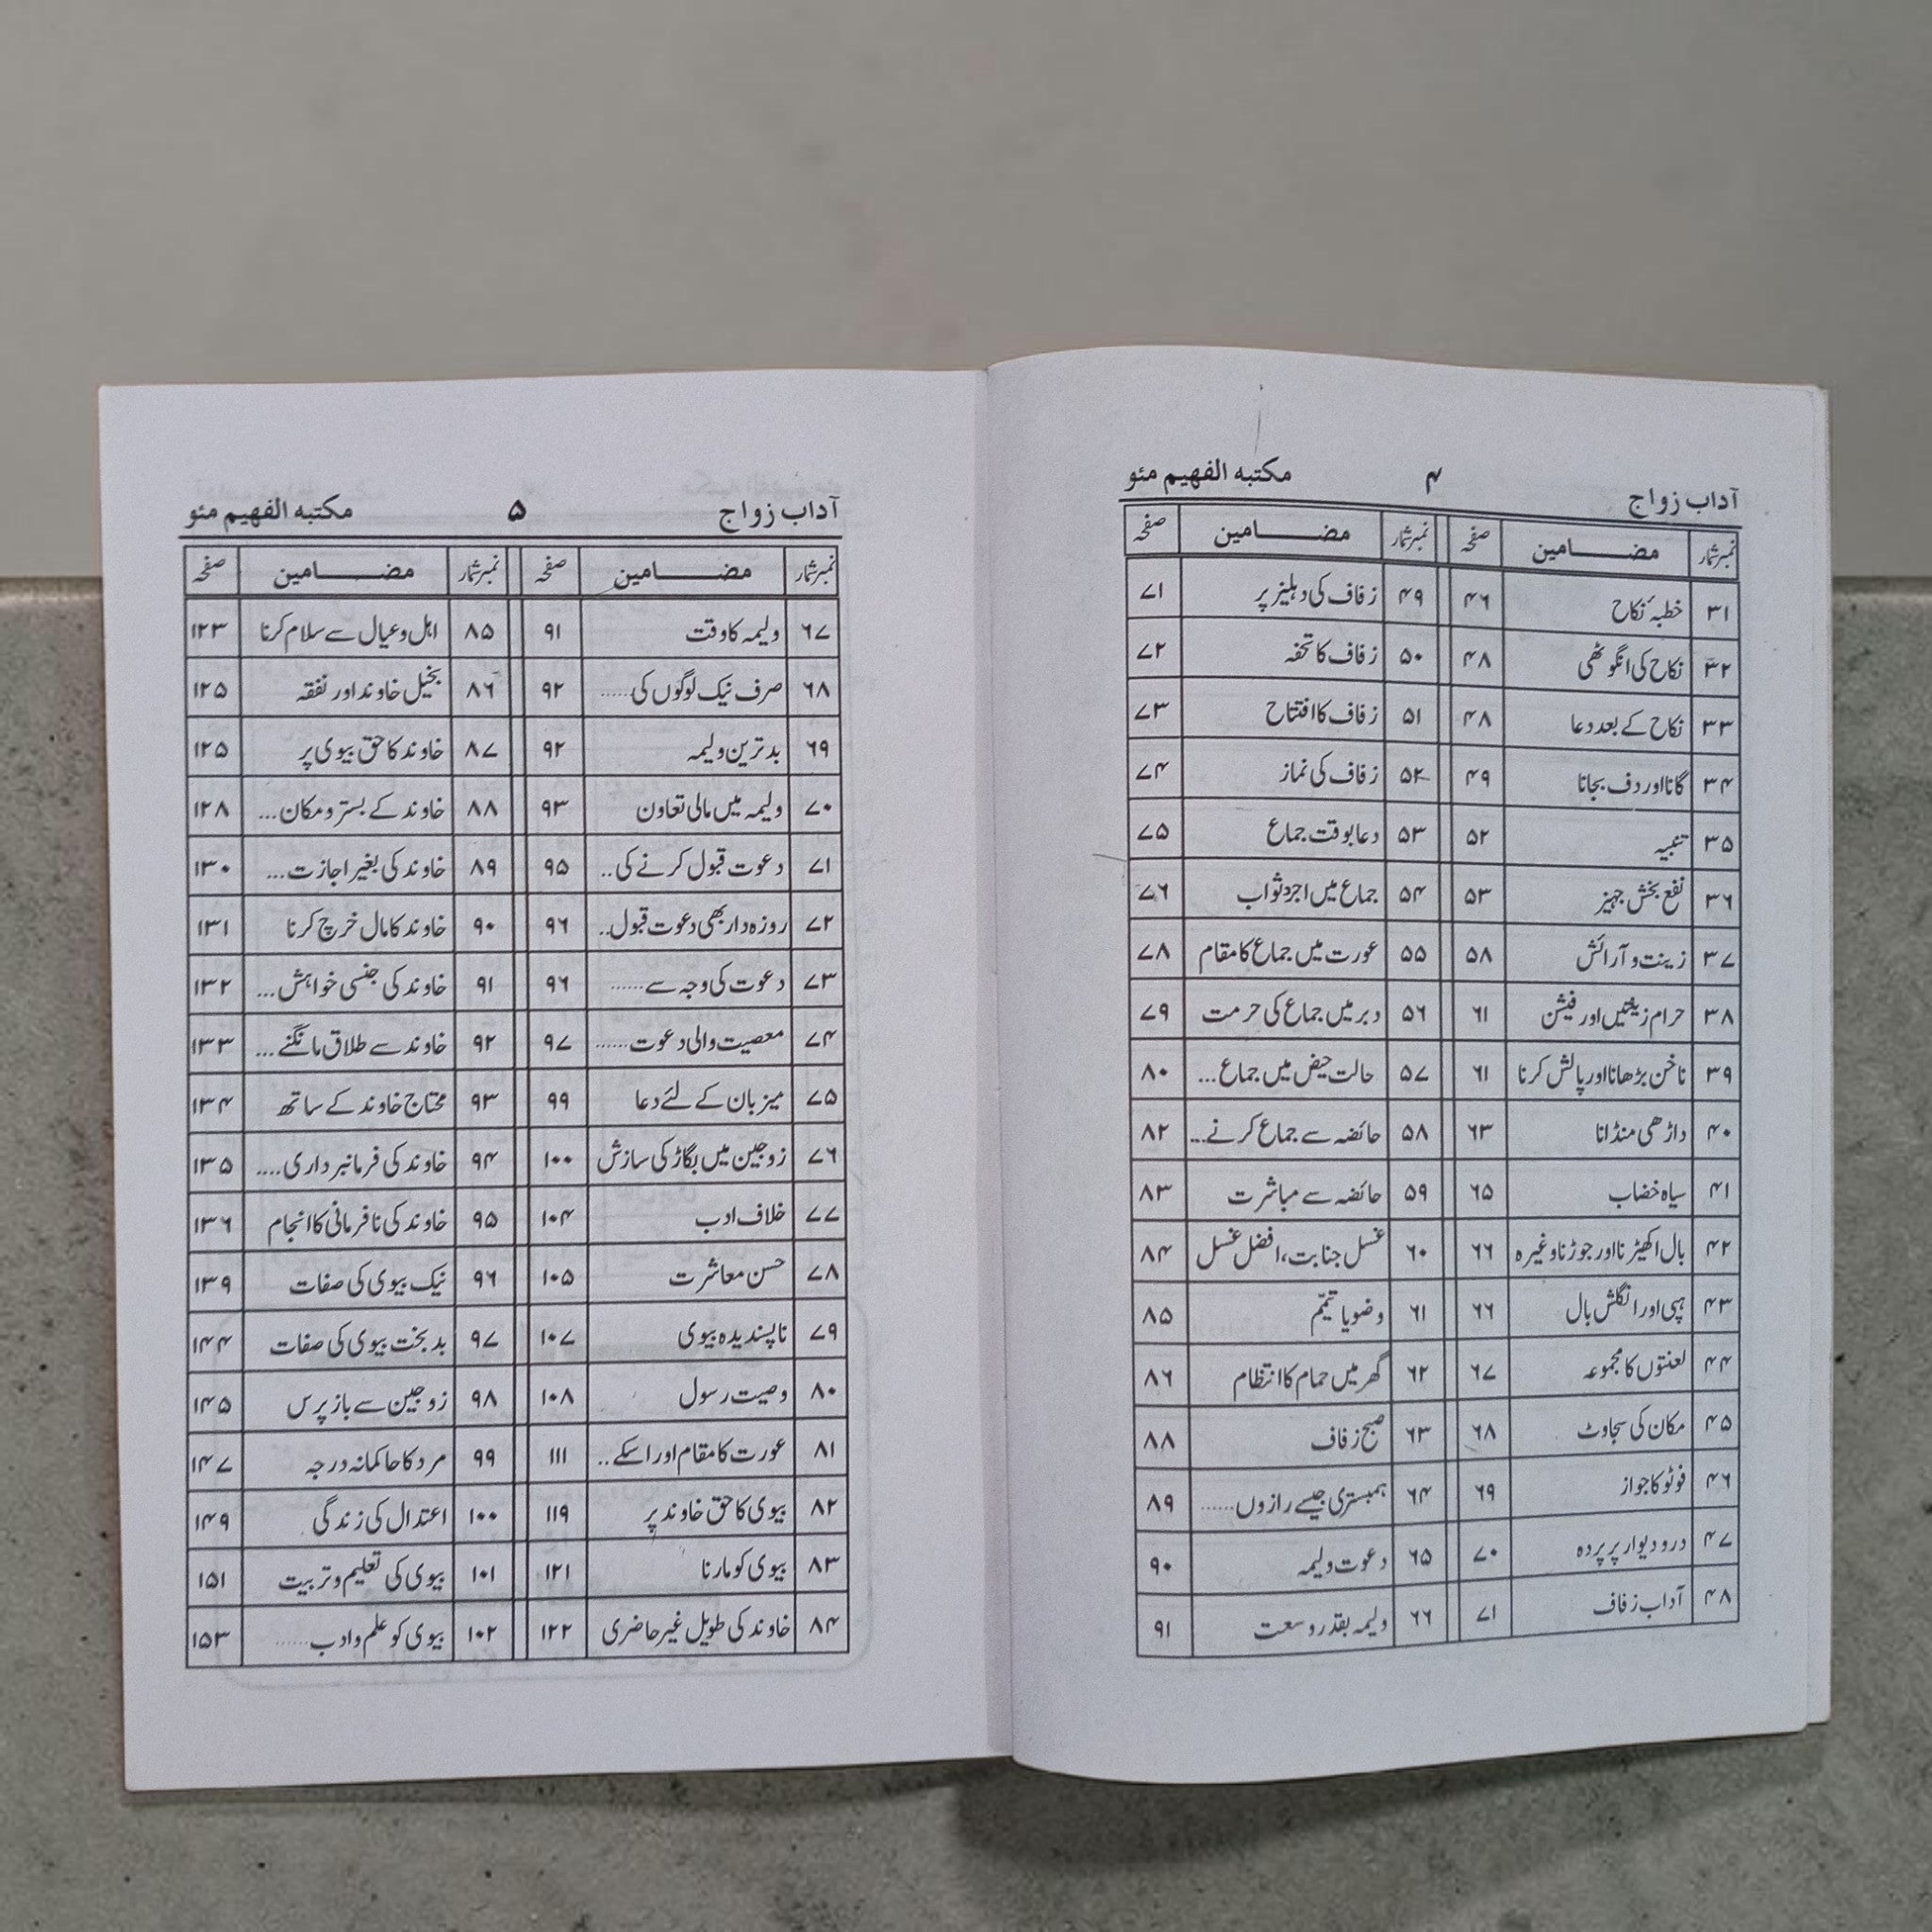 آداب زواج ۴ مکتبه الفهیم مئو
نمبر شمار مضامین صفحہ نمبر شمار مضامین صفحہ
۳۱ خطبۂ نکاح ۴۶ ۴۹ زفاف کی دہلیز پر ۷۱
۳۲ نکاح کی انگوٹھی ۴۸ ۵۰ زفاف کا تحفہ ۷۲
۳۳ نکاح کے بعد دعا ۴۸ ۵۱ زفاف کا افتتاح ۷۳
۳۴ گانا اور دف بجانا ۴۹ ۵۲ زفاف کی نماز ۷۴
۳۵ تنبیہ ۵۲ ۵۳ دعا بوقت جماع ۷۵
۳۶ نفع بخش جہیز ۵۳ ۵۴ جماع میں اجر و ثواب ۷۶
۳۷ زینت و آرائش ۵۸ ۵۵ عورت میں جماع کا مقام ۷۸
۳۸ حرام زینتیں اور فیشن ۶۱ ۵۶ دبر میں جماع کی حرمت ۷۹
۳۹ ناخن بڑھانا اور پالش کرنا ۶۱ ۵۷ حالت حیض میں جماع... ۸۰
۴۰ داڑھی منڈانا ۶۳ ۵۸ حائضہ سے جماع کرنے... ۸۲
۴۱ سیاہ خضاب ۶۵ ۵۹ حائضہ سے مباشرت ۸۳
۴۲ بال اکھیڑنا اور جوڑنا وغیرہ ۶۶ ۶۰ غسل جنابت، افضل غسل ۸۴
۴۳ ہپی اور انگلش بال ۶۶ ۶۱ وضو یا تیمّم ۸۵
۴۴ لعنتوں کا مجموعہ ۶۷ ۶۲ گھر میں حمام کا انتظام ۸۶
۴۵ مکان کی سجاوٹ ۶۸ ۶۳ صبح زفاف ۸۸
۴۶ فوٹو کا جواز ۶۹ ۶۴ ہمبستری جیسے رازوں...... ۸۹
۴۷ در و دیوار پر پردہ ۷۰ ۶۵ دعوت ولیمہ ۹۰
۴۸ آداب زفاف ۷۱ ۶۶ ولیمہ بقدر وسعت ۹۱
آداب زواج ۵ مکتبه الفهیم مئو
نمبر شمار مضامین صفحہ نمبر شمار مضامین صفحہ
۶۷ ولیمہ کا وقت ۹۱ ۸۵ اہل و عیال سے سلام کرنا ۱۲۳
۶۸ صرف نیک لوگوں کی..... ۹۲ ۸۶ بخیل خاوند اور نفقہ ۱۲۵
۶۹ بدترین ولیمہ ۹۲ ۸۷ خاوند کا حق بیوی پر ۱۲۵
۷۰ ولیمہ میں مالی تعاون ۹۳ ۸۸ خاوند کے بستر و مکان... ۱۲۸
۷۱ دعوت قبول کرنے کی.. ۹۵ ۸۹ خاوند کی بغیر اجازت... ۱۳۰
۷۲ روزہ دار بھی دعوت قبول.. ۹۶ ۹۰ خاوند کا مال خرچ کرنا ۱۳۱
۷۳ دعوت کی وجہ سے...... ۹۶ ۹۱ خاوند کی جنسی خواہش... ۱۳۲
۷۴ معصیت والی دعوت...... ۹۷ ۹۲ خاوند سے طلاق مانگنے... ۱۳۳
۷۵ میزبان کے لئے دعا ۹۹ ۹۳ محتاج خاوند کے ساتھ ۱۳۴
۷۶ زوجین میں بگاڑ کی سازش ۱۰۰ ۹۴ خاوند کی فرمانبرداری.... ۱۳۵
۷۷ خلاف ادب ۱۰۴ ۹۵ خاوند کی نافرمانی کا انجام ۱۳۶
۷۸ حسن معاشرت ۱۰۵ ۹۶ نیک بیوی کی صفات ۱۳۹
۷۹ ناپسندیدہ بیوی ۱۰۷ ۹۷ بدبخت بیوی کی صفات ۱۴۴
۸۰ وصیت رسول ۱۰۸ ۹۸ زوجین سے باز پرس ۱۴۵
۸۱ عورت کا مقام اور اسکے.. ۱۱۱ ۹۹ مرد کا حاکمانہ درجہ ۱۴۷
۸۲ بیوی کا حق خاوند پر ۱۱۹ ۱۰۰ اعتدال کی زندگی ۱۴۹
۸۳ بیوی کو مارنا ۱۲۱ ۱۰۱ بیوی کی تعلیم و تربیت ۱۵۱
۸۴ خاوند کی طویل غیر حاضری ۱۲۲ ۱۰۲ بیوی کو علم و ادب...... ۱۵۳